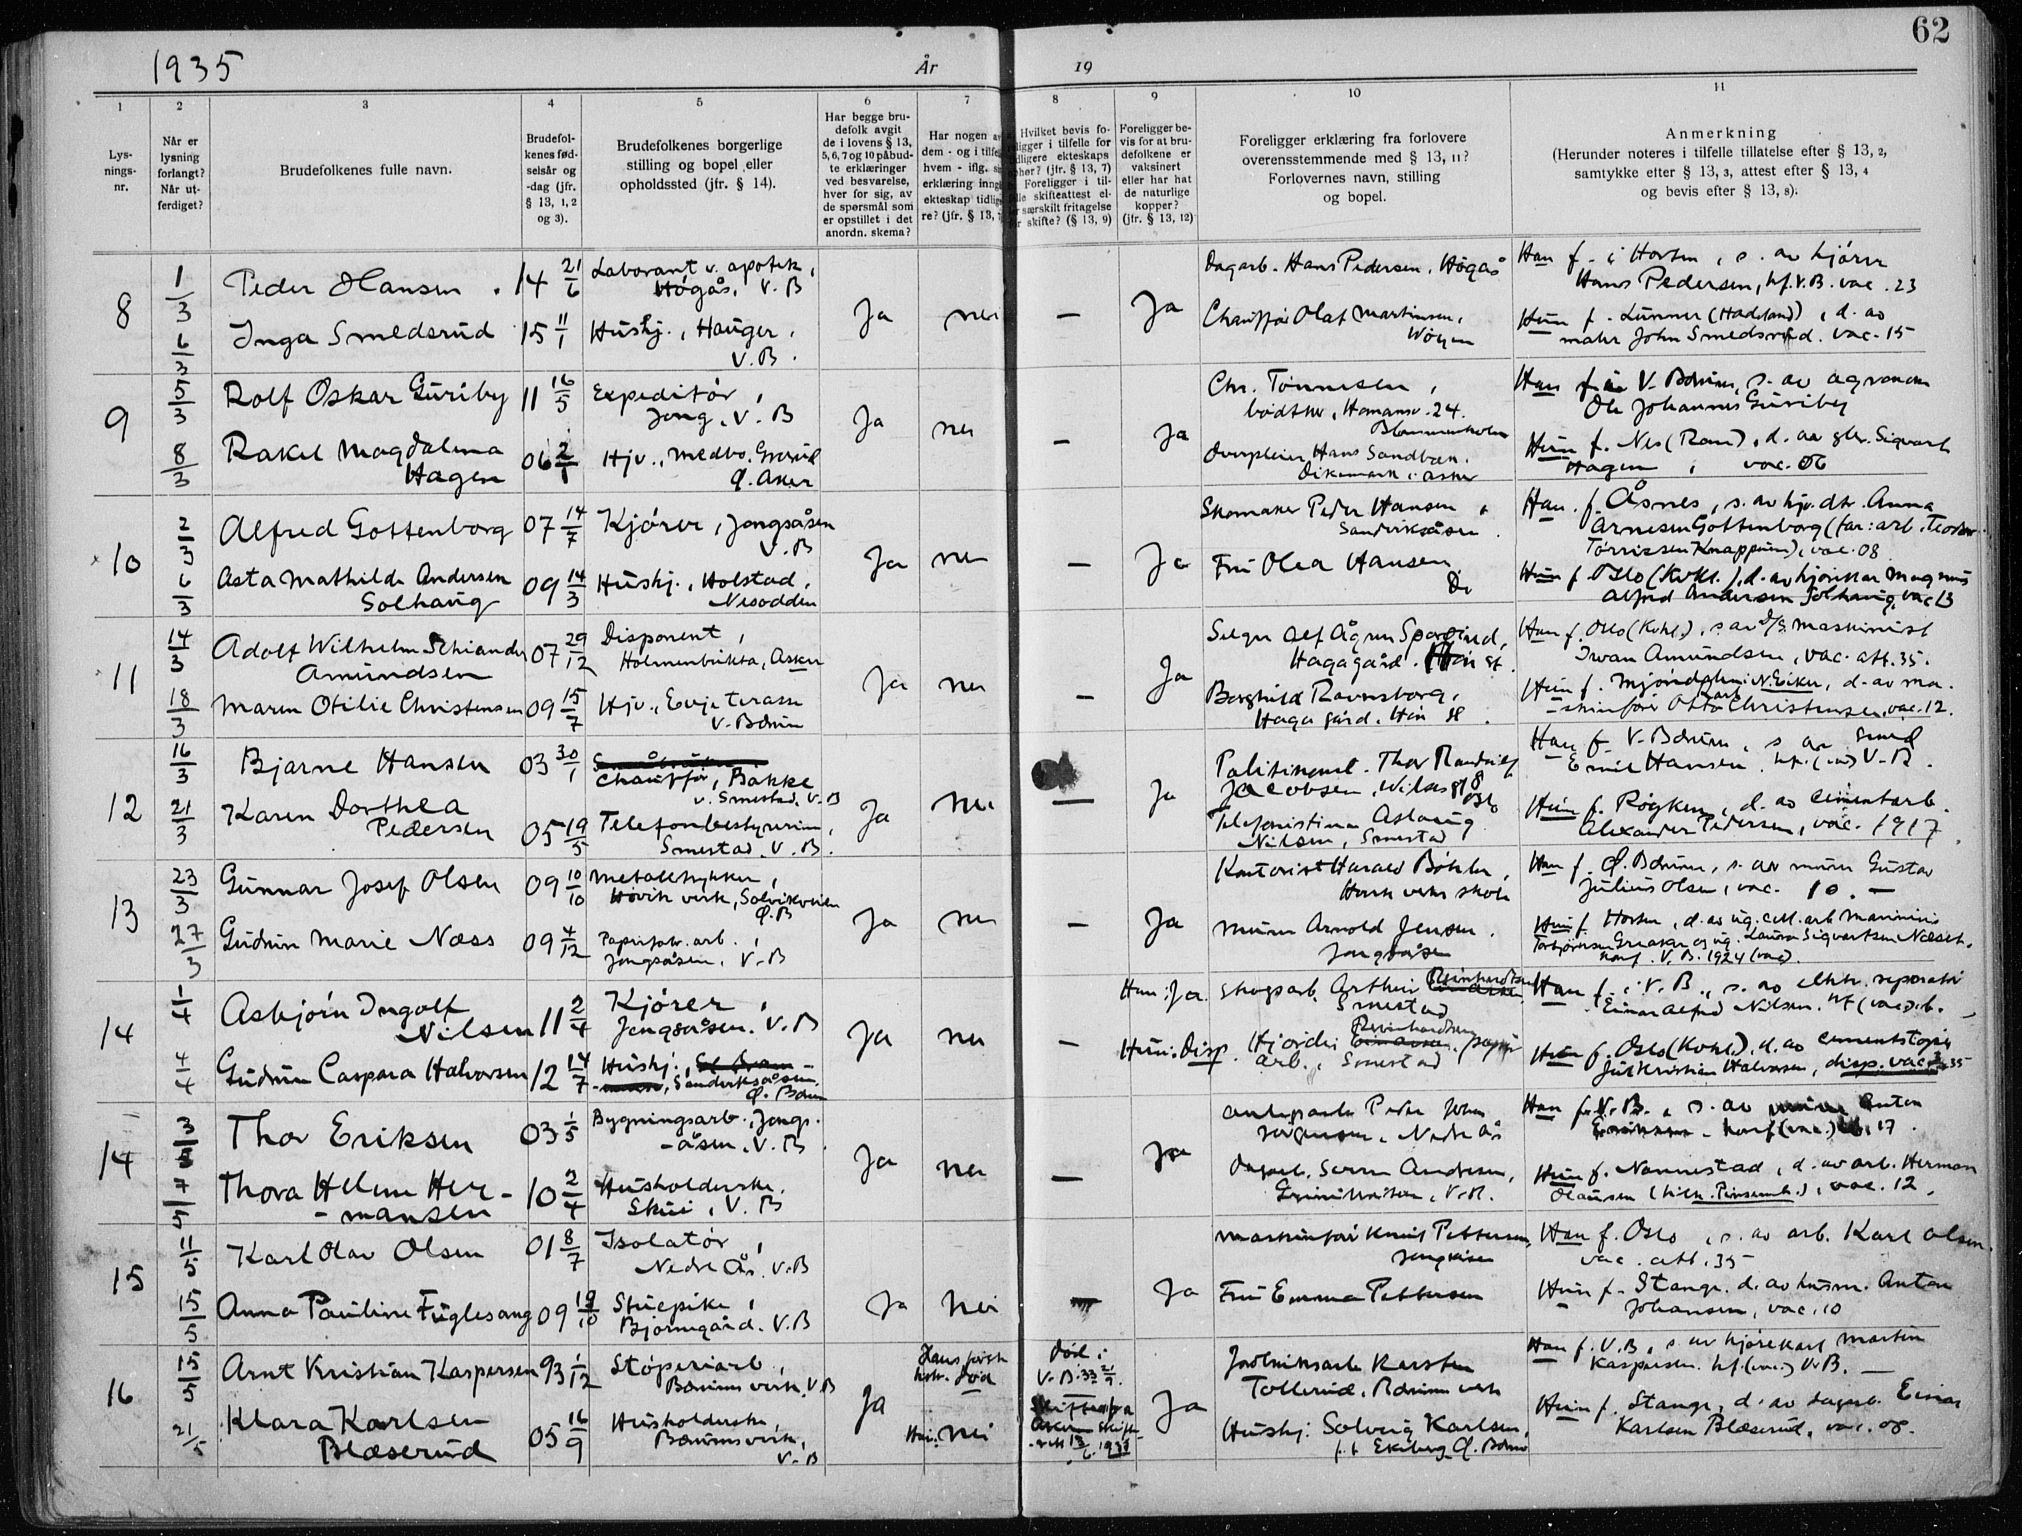 62
1935
År
19
1
2
3
4
5
6
7
8
9
10
11
Lys-
nings-
nr.
Når er
lysning
forlangt?
Når ut-
ferdiget?
Brudefolkenes fulle navn.
Brudefol-
kenes fød-
selsår og
-dag (jfr.
§ 13, 1, 2
og 3).
Brudefolkenes borgerlige
stilling og bopel eller
opholdssted (jfr. § 14).
Har begge bru-
defolk avgit
de i lovens § 13,
5, 6, 7 og 10 påbud-
te erklæringer
ved besvarelse,
hver for sig, av
de spørsmål som
er opstillet i det
anordn. skema?
Har nogen av
dem - og i tilfel
hvem - iflg. si
erklæring inngå
ekteskap tidlig
re? (jfr. § 13, 7
Hvilket bevis fo-
religger i tilfelle for
tidligere ekteskaps
opher? (jfr. § 13, 7)
Foreligger i til-
fælle skifteattest el-
ler særskilt fritagelse
for skifte? (§ 13, 9)
Foreligger be-
vis for at bru-
defolkene er
vaksinert
eller har hat
de naturlige
kopper?
(jfr. § 13, 12)
Foreligger erklæring fra forlovere
overensstemmende med § 13, 11?
Forlovernes navn, stilling
og bopel.
Anmerkning
(Herunder noteres i tilfelle tillatelse efter § 13, 2,
samtykke efter § 13, 3, attest efter § 13, 4
og bevis efter § 13, 8).
8
1/3
6/3
Peder Hansen
14 21/6
Laborant v. apotek,
Høgås, V. B
Inga Smedsrud
15 11/1
Hushj., Hauger,
V. B.
Ja
nei
—
Ja
Dagarb. Hans Pedersen, Høgås
Chauffør Olaf Martinsen,
Wøyen
Han f. i Horten, s. av kjører
Hans Pedersen, hf. V. B. vac. 23
Hun f. Lunner (Hadeland), d. av
maler John Smedsrud. vac. 15
9
5/3
8/3
Rolf Oskar Guriby
11 16/5
Expeditør,
Jong, V. B
Rakel Magdalena
Hagen
06 2/1
Hjv.,
Ø. Aker
Ja
nei
—
Ja
Chr. Tønnesen,
bødtker, Homansv. 24.
Blommenholm
Hans Sandbæk,
Dikemark i Asker
Han f. i V. Bærum, s. av agronom
Ole Johannes Guriby
Hun f. Nes (Rom), d. av gbr. Sigvart
Hagen, vac. 06
10
2/3
6/3
Alfred Gottenborg
07 14/7
Kjører, Jongsåsen
V. B
Asta Mathilde Andersen
Solhaug
09 14/3
Hushj., Holstad,
Nesodden
Ja
nei
—
Ja
Skomaker Peder Hansen,
Sandviksåsen.
Fru Olea Hansen,
Do
Han. f. Åsnes, s. av hjv. dtr. Anna
Arnesen Gottenborg (far: arb. Teodor
Tørrissen Knappum), vac. 08
Hun f. Oslo (Kvhl.), d. av hjørikar Magnus
Alfred Andersen Solhaug, vac 13
11
14/3
18/3
Adolf Wilhelm Schiander
Amundsen
07 29/12
Disponent,
Holmenbukta, Asker
Maren Otilie Christensen
09 15/7
Hjv., Evje terasse
V. Bærum
Ja
nei
—
Ja
Selger Alf Ågren
Haga gård. Høn st.
Borghild Ravnsborg,
Haga gård. Høn st.
Han f. Oslo (Kvhl.), s. av d/s maskinist
Iwan Amundsen, vac. att. 35.
Hun f. Mjøndalen. N. Eiker, d. av ma-
skinfører Otto Christensen, vac. 12.
12
16/3
21/3
Bjarne Hansen
03 30/1
Chauffør, Bakke
v. Smestad, V. B
Karen Dorthea
Pedersen
05 19/5
Telefonbestyrerinne,
Smestad, V. B.
Ja
nei
—
Ja
Politikonst. Thor Randulf
Jacobsen,
Oslo
Telefonistinne Aslaug
Nilsen, Smestad
Han f. V. Bærum, s. av smed
Emil Hansen. hf. (vac) V. B.
Hun f. Røyken, d. av cementarb.
Alexander Pedersen, vac. 1917
13
23/3
27/3
Gunnar Josef Olsen
09 10/10
Metalltrykker,
Høvik verk, Solvikveien
Ø. B
Gudrun Marie Næss
09 4/12
Papirfabr. arb.,
Jongsåsen, V. B
Ja
nei
—
Ja
Kontorist Harald Bøhler,
Høvik verks skole
Murer Arnold Jensen.
Jongsåsen
Han f. Ø. Bærum, s. av murer Gustav
Julius Olsen, vac. 10. —
Hun f. Horten, d. av ug. cell. arb. Marinius
Torbjørnsen Greaker og ug. Laura Sigvartsen Næset.
konf. V. B. 1924 (vac).
14
1/4
4/4
Asbjørn Ingolf
Nilsen
11 2/4
Kjører,
Jongsåsen. V. B
Gudrun Caspara Halvorsen
12 14/7
Hushj.,
Sandviksåsen,
Ø. Bærum
Ja
nei
—
Han: Ja.
Hun: Disp.
Skogsarb. Arthur Reinhardtsen
Smestad
Hjördis Reinhardtsen, papir
arb., Smestad
Han f. i V. B., s. av elektr. reparatør
Einar Alfred Nilsen. hf (vac) V. B.
Hun f. Oslo (Kvhl.), d. av cementstøper
Juel Kristian Halvorsen, disp. vac. 35
14
3/5
7/5
Thor Eriksen
03 1/5
Bygningsarb., Jongs-
-åsen, V. B
Thora Helene Her-
- mansen
10 2/4
Husholderske,
Skui, V. B
Ja
nei
—
Ja
Anleggsarb. Peder Johan
Jørgensen. Nedre Ås
Dagarb. Søren Andersen,
V. B.
Han f. V. B., s. av murer Anton
Eriksen - konf (vac) 17.
Hun f. Nannestad, d. av arb. Herman
Olaussen (tilh. Pinsemh.), vac. 12,
15
11/5
15/5
Karl Olav Olsen
01 8/7
Isolatør,
Nedre Ås. V. B
Anna Pauline Fuglesang
09 19/10
Stuepike,
Bjørnegård. V. B
Ja
nei
—
Ja
Maskinfører Knut Pettersen,
Jongsåsen
Fru Emma Pettersen
Han f. Oslo, s. av arb. Karl Olsen.
vac. att. 35
Hun f. Stange. d. av husm. Anton
Johansen, vac. 10
16
15/5
21/5
Arnt Kristian Kaspersen
93 1/12
Støperiarb.,
Bærums verk, V. B
Klara Karlsen
Blæserud
05 16/9
Husholderske,
Bærums verk,
V. B
Ja
Hans første
hstr. død
Hun: nei
død i
V. B. 33
Asker skifte-
rett
1933
Ja
Jordbruksarb. Karsten
Tollerud, Bærums verk
Hushj: Solveig Karlsen,
p.t Ekeberg Ø. Bærum
Han f. V. B, s. av kjørekarl Martin
Kaspersen. hf. (vac) V. B. —
Hun f. Stange, d. av dagarb. Einar
Karlsen Blæserud, vac. 08.